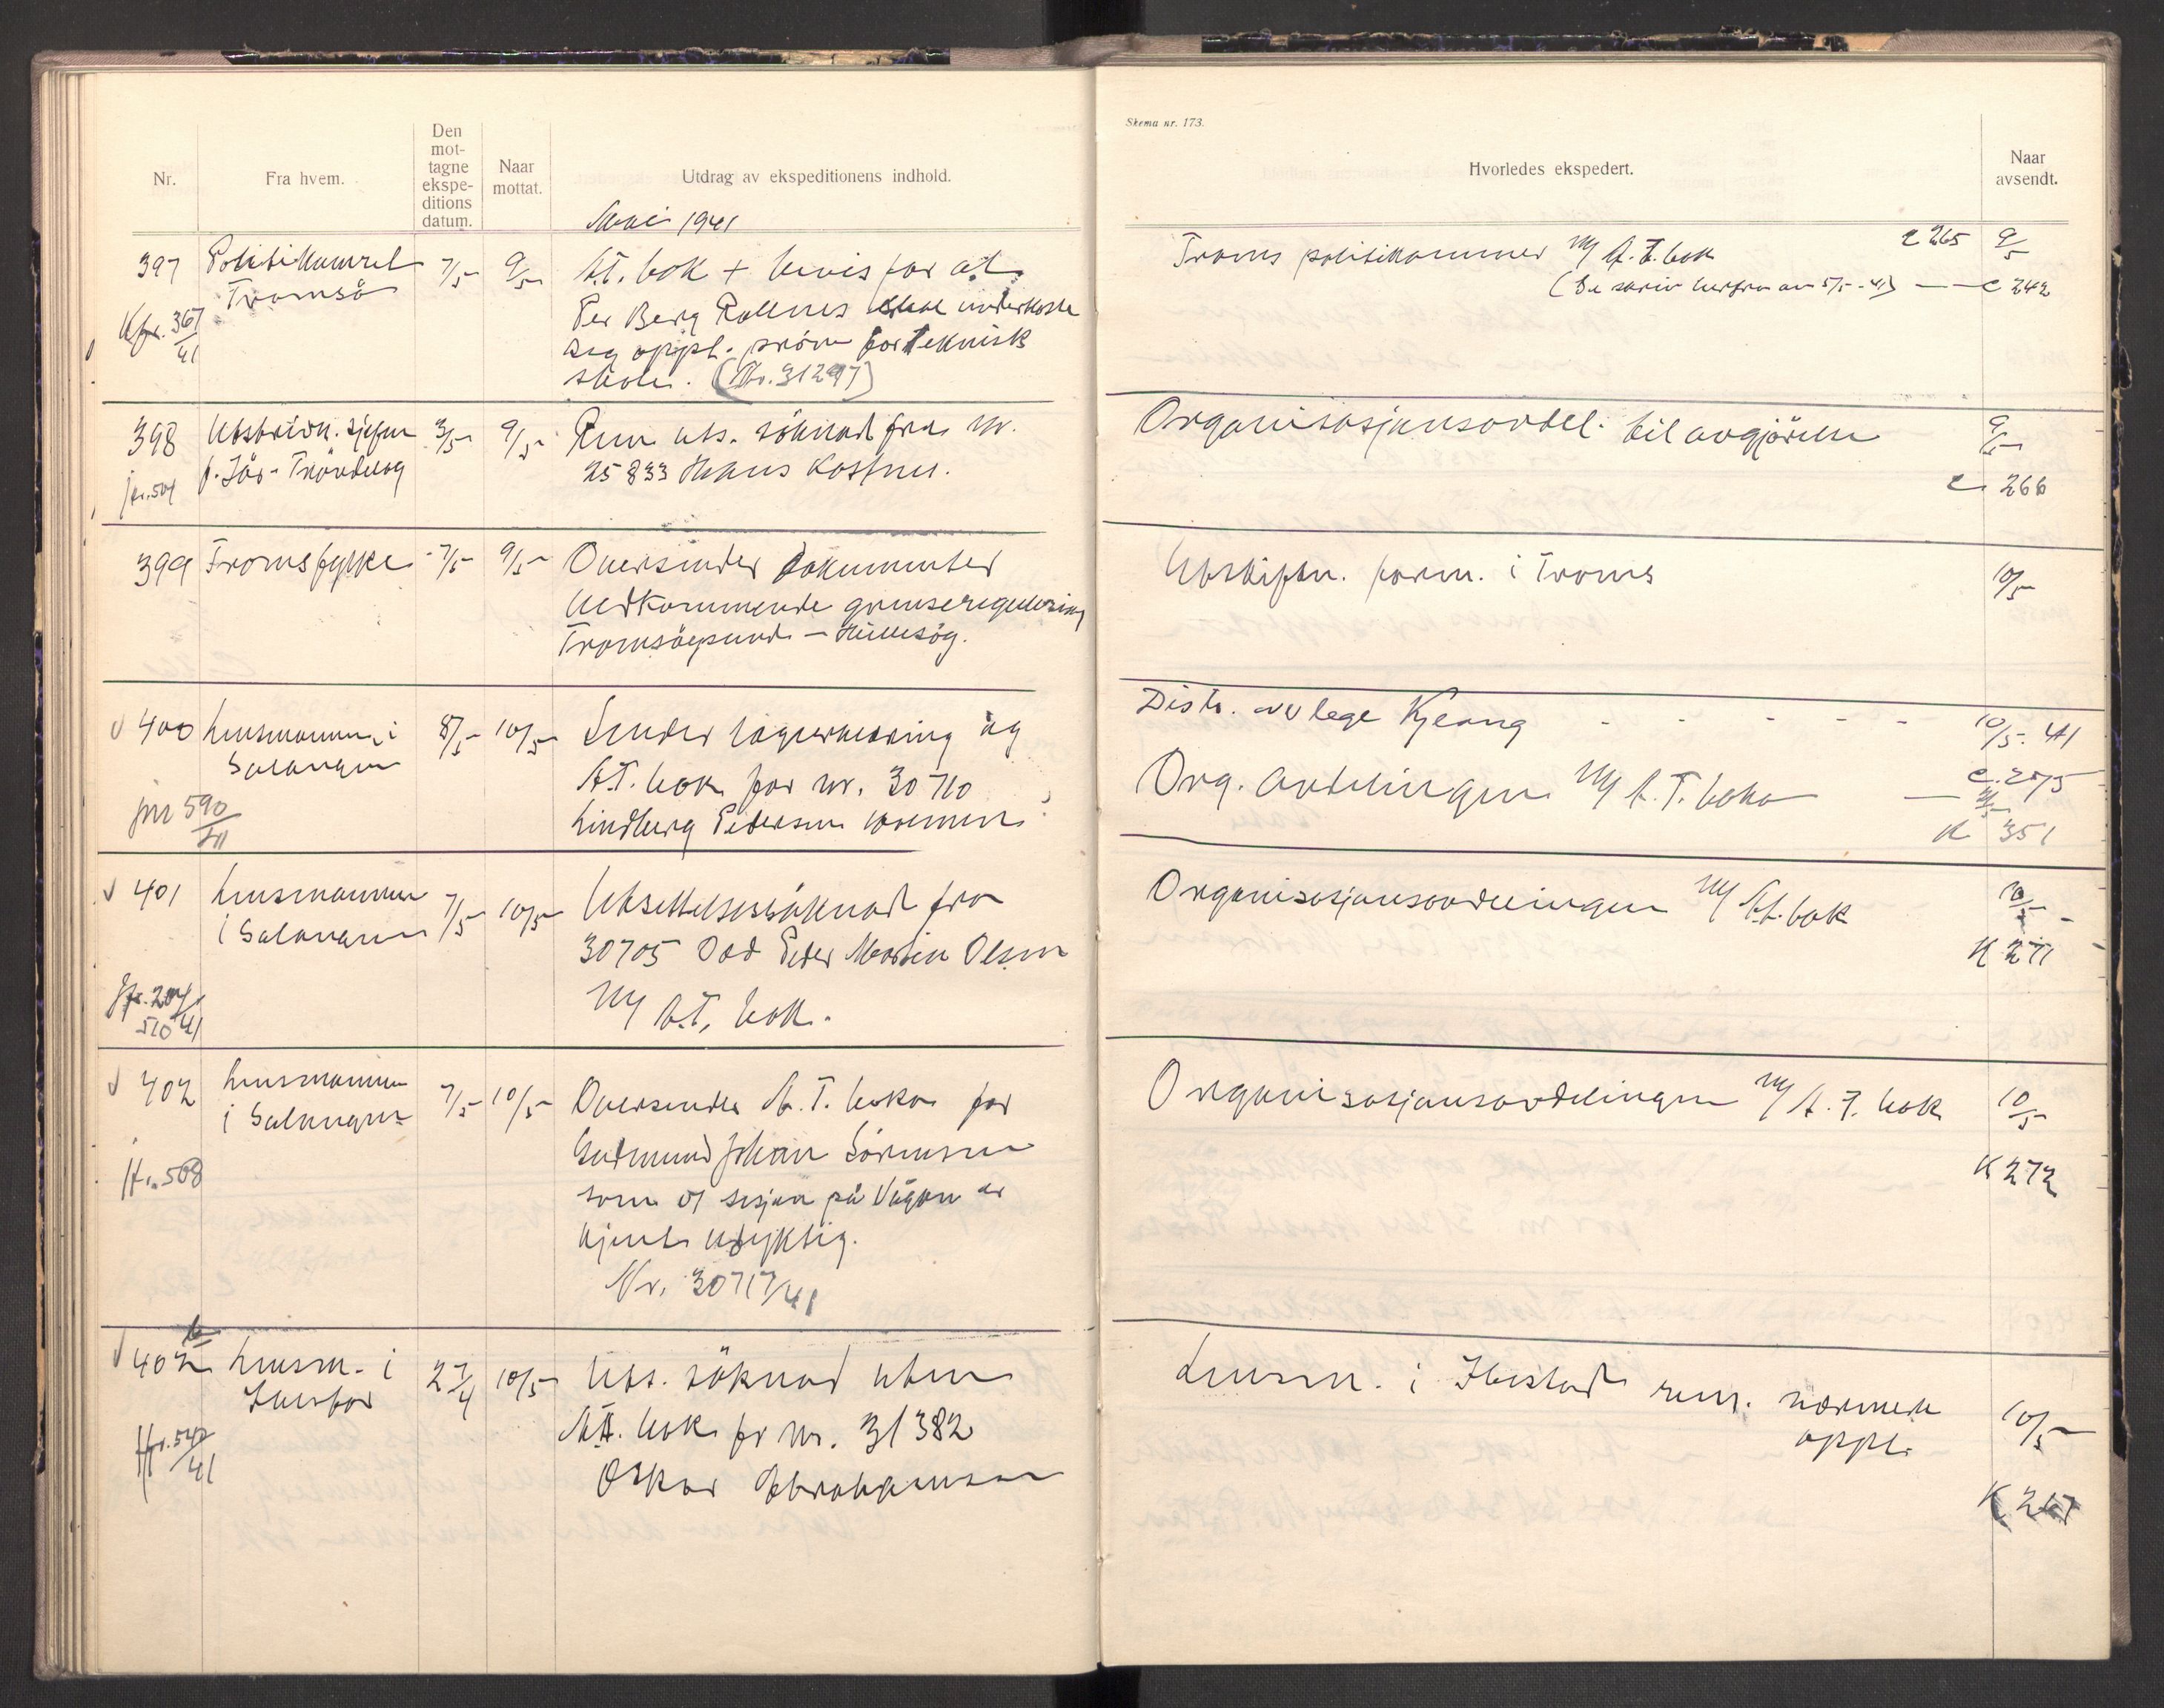 Nr.
Fra hvem.
Den
mot-
tagne
ekspe-
ditions
datum.
Naar
mottat.
Utdrag av ekspeditionens indhold.
Mai 1941
397
Politikamret
Tromsö
Kfr. 367/41
7/5
9/5
A.T. bok + bevis for at
Per Berg Rollnes skal underkaste
seg oppt. pröve for teknisk
skole. (Nr. 31297)
398
Utskrivn. sjefen
f. Sör-Tröndelag
jfr. 504
3/5
9/5
uts. söknad fra nr.
25833 Hans
399
Troms fylke
7/5
9/5
Oversender dokumenter
vedkommende grenseregulering
Tromsöysund - Hillesöy.
400
Lensmannen i
Salangen
jnr 590/41
8/5
10/5
Sender legeerklæring og
A.T. bok for nr. 30710
Lindberg Pedersen
401
Lensmannen
i Salangen
Jfr. 204/41
510
7/5
10/5
Utsettelsessöknad fra
30705 Odd Peder Martin Olsen
m/ A.T. bok.
402
Lensmannen
i Salangen
Jfr. 508
7/5
10/5
Oversender A.T. boka for
Gudmund Johan Sörensen
som v/ sesjon på Vågan er
kjent udyktig.
Nr. 30717/41
402 b
Lensm. i
27/4
10/5
Uts. söknad uten
A.T. bok fr nr. 31382
Oskar Abrahamsen
Skema nr. 173.
Hvorledes ekspedert.
Naar
avsendt.
Troms politikammer m/ A.T. bok
c 265
9/5
(Se skriv herfra av 5/5-41) — c 242
Organisasjonsavdel. til avgjörelse
9/5
c. 266
Utskiftn. form. i Troms
10/5
Distr. lege Kjeang - - - - -
10/5. 41
Org. avdelingen m/ A.T. boka —
c. 275
K 351
Organisasjonsavdelingen m/ A.T. bok
10/5
K 271
Organisasjonsavdelingen m/ A.T. bok
10/5
K 272
Lensm. i Ibestad nærmere
oppl.
10/5
K 267